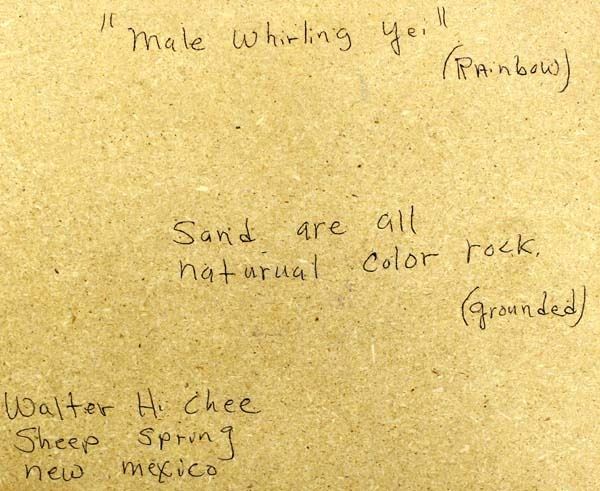 "Male Whirling Yei"
(Rainbow)
Sand are all
naturual color rock.
(grounded)
Walter H. Chee
Sheep Spring
new mexico